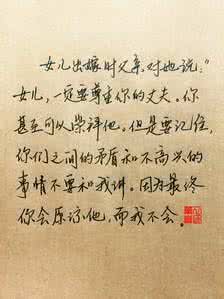 女儿出嫁时父亲对她说:"
女儿,一定要尊重你的丈夫。你
甚至可以崇拜他。但是要记住,
你们之间的矛盾和不高兴的
事情不要和我讲。因为最终
你会原谅他,而我不会.